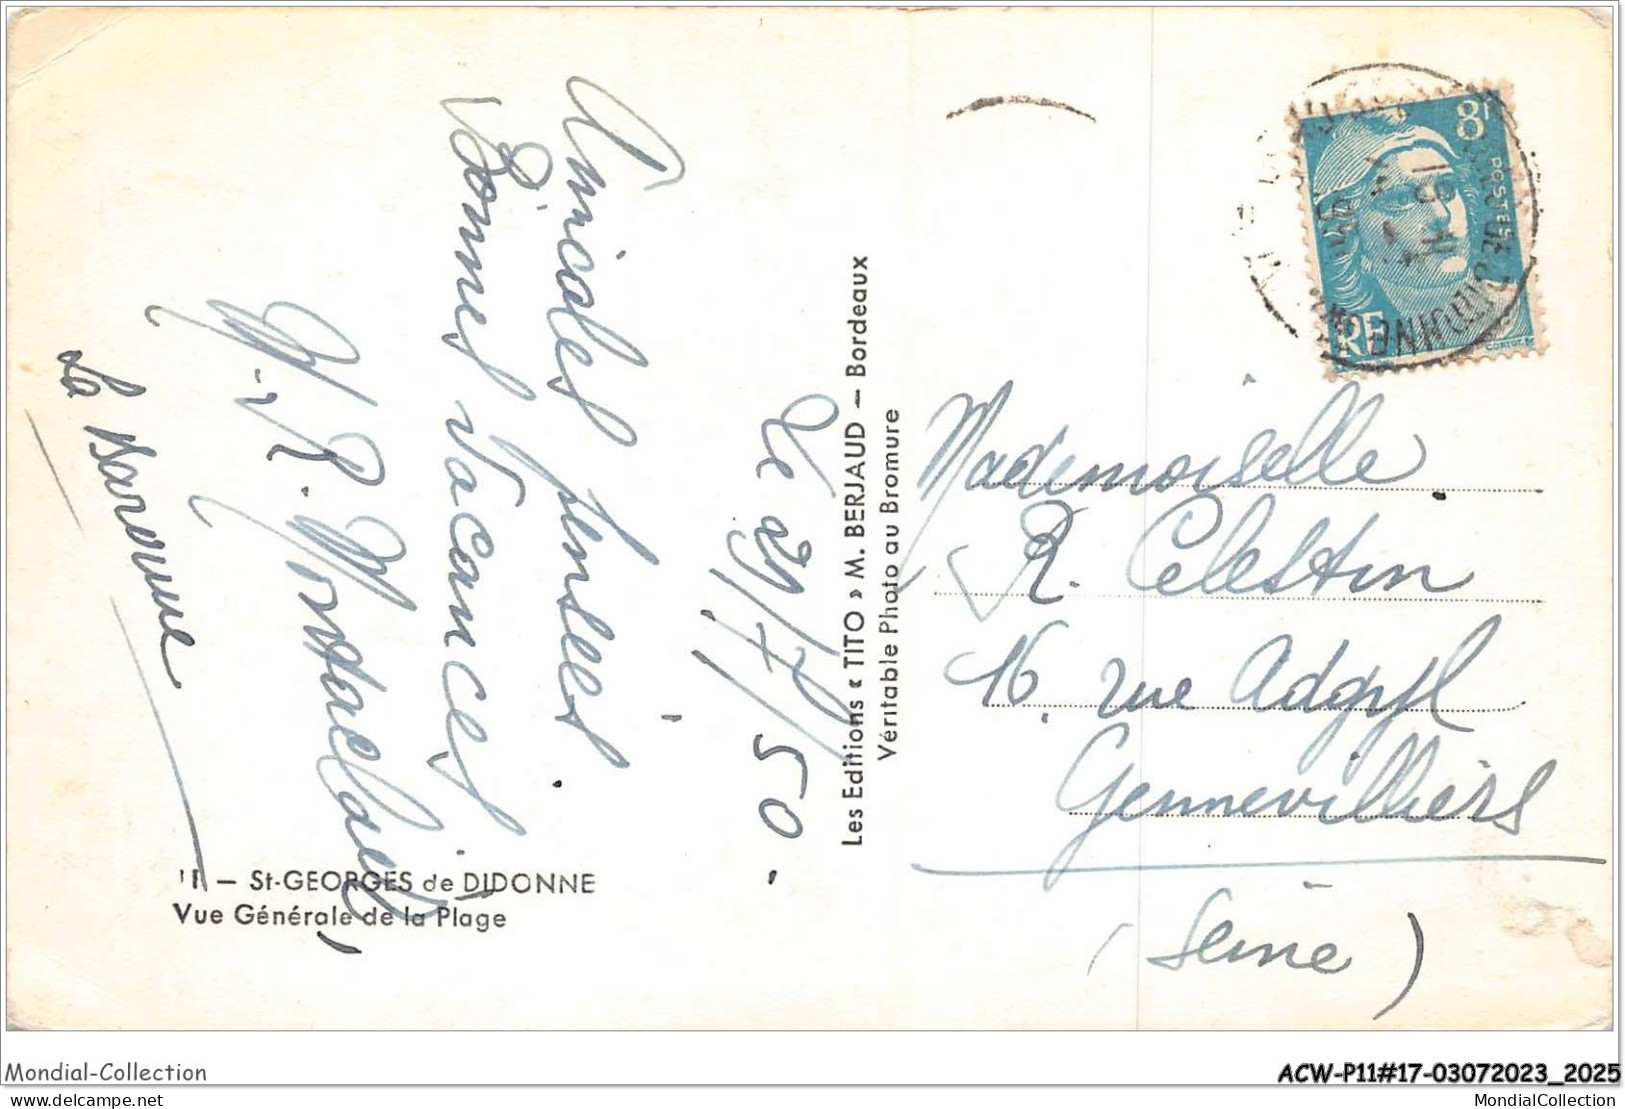 Amicales pensées
Bonnes vacances
Le 29/7/50.
La Baronne
11 - St-GEORGES de DIDONNE
Vue Générale de la Plage
Les Editions « TITO » M. BERJAUD - Bordeaux
Véritable Photo au Bromure
8f
POSTES
RF
Mademoiselle
R. Celestin
16 rue
Gennevilliers
(Seine)
Mondial-Collection
ACW-P11#17-03072023_2025
delcampe.net
MondialCollection